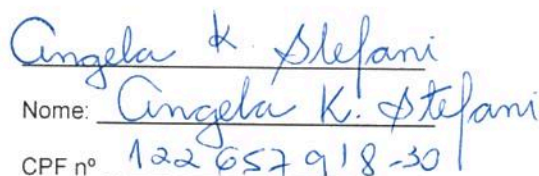 Angela K. Stefani
Nome: Angela K. Stefani
CPF nº 122657918-30